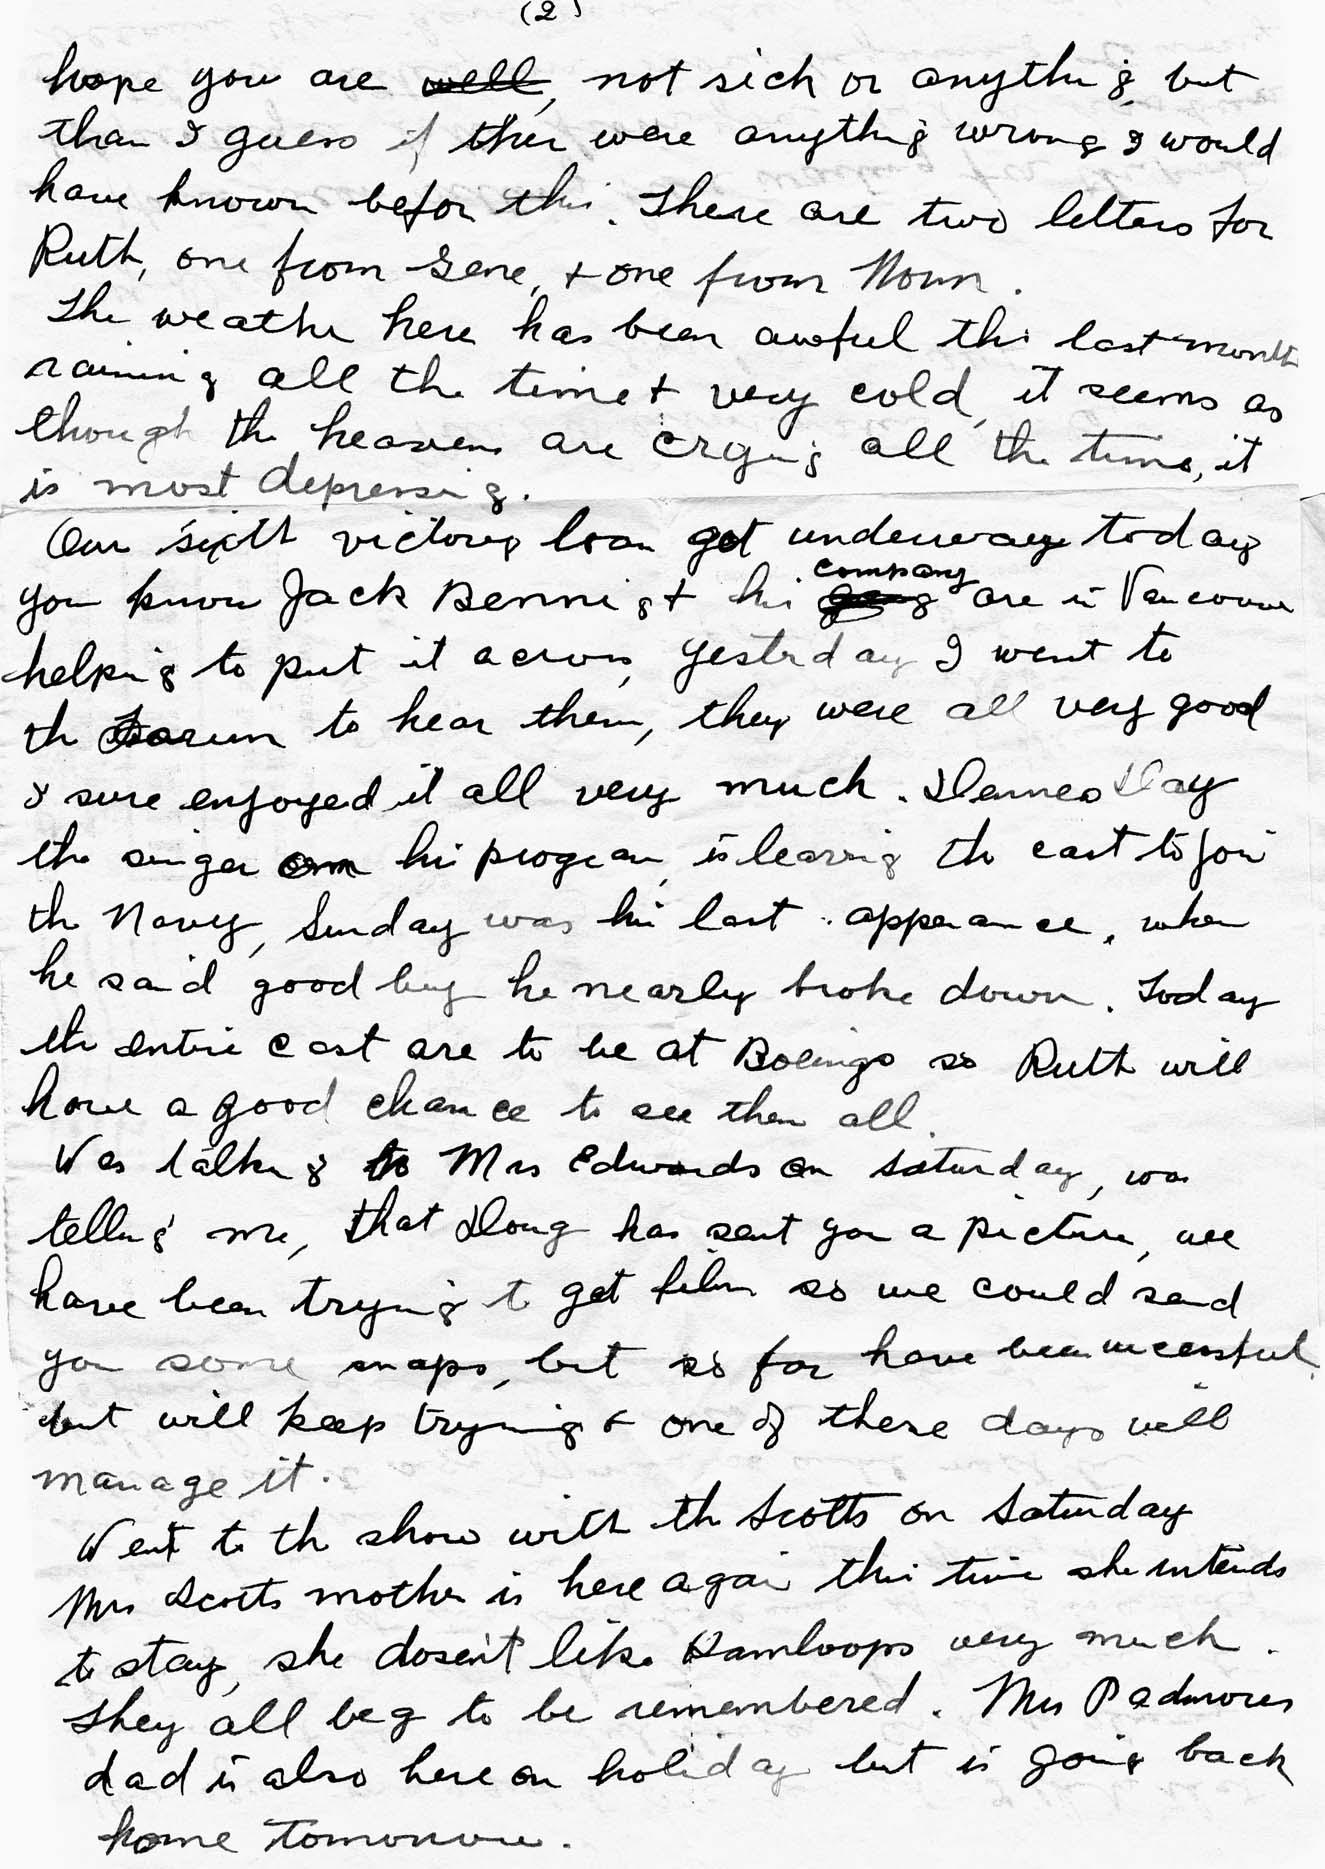 (2)
hope you are well, not sick or anything, but
than I guess if ther were anything wrong I would
have known befor this. There are two letters for
Ruth, one from Gene, + one from Norm.
The weather here has been awful this last month
raining all the time + very cold, it seems as
though the heavens are crying all the time, it
is most depressing.
Our sixth victory loan got underway today
you know Jack Benny + his company are in Vancouver
helping to put it across, yesterday I went to
the Forum to hear them, they were all very good
I sure enjoyed it all very much. Dennes Day
the singer on his program, is leaving the cast to join
the Navy, Sunday was his last appearance, when
he said good buy he nearly broke down. Today
the entire cast are to be at Boeings so Ruth will
have a good chance to see them all.
Was talking to Mrs Edwards on Saturday, was
telling me, that Doug has sent you a picture, we
have been trying to get film so we could send
you some snaps, but so far have been
but will keep trying + one of these days will
manage it.
Went to the show with the Scotts on Saturday
Mrs Scotts mother is here again this time she intends
to stay, she dosen't like Kamloops very much.
They all beg to be remembered. Mrs Padmores
dad is also here on holiday but is going back
home tomorrow.